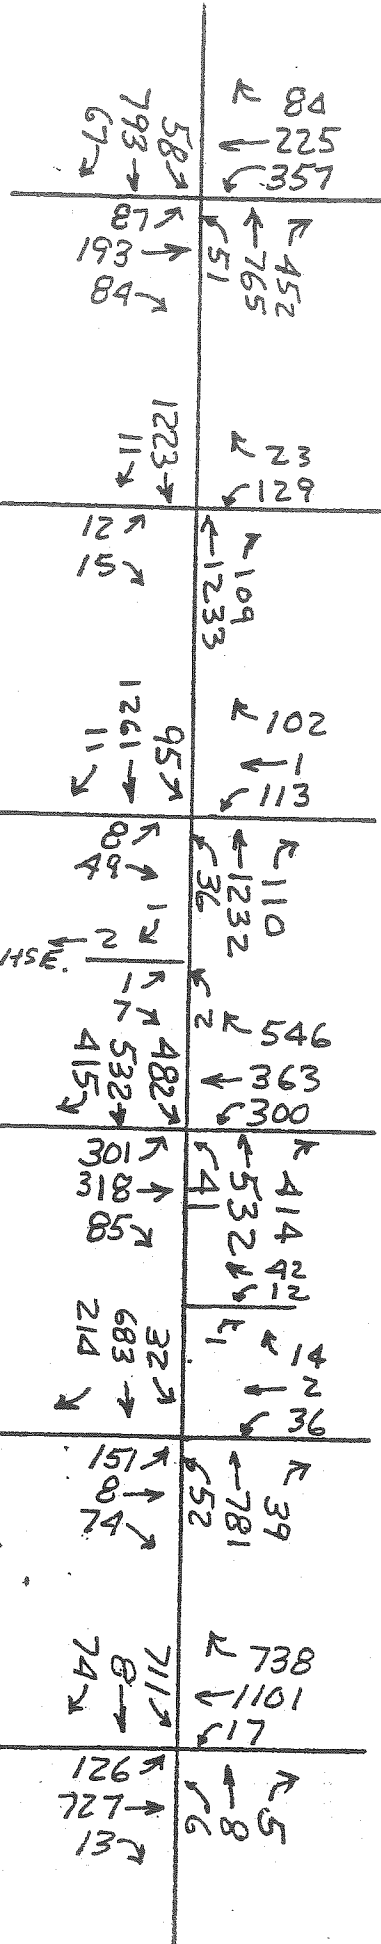 84
225
357
58
793
67
87
193
84
51
765
452
23
129
1223
11
12
15
109
1233
102
1
113
95
1261
11
8
49
36
1232
110
1
2
HSE.
1
7
2
546
363
300
482
532
415
301
318
85
41
532
414
42
12
1
14
2
36
32
683
214
151
8
74
52
781
39
738
1101
17
711
8
74
126
727
13
6
8
5